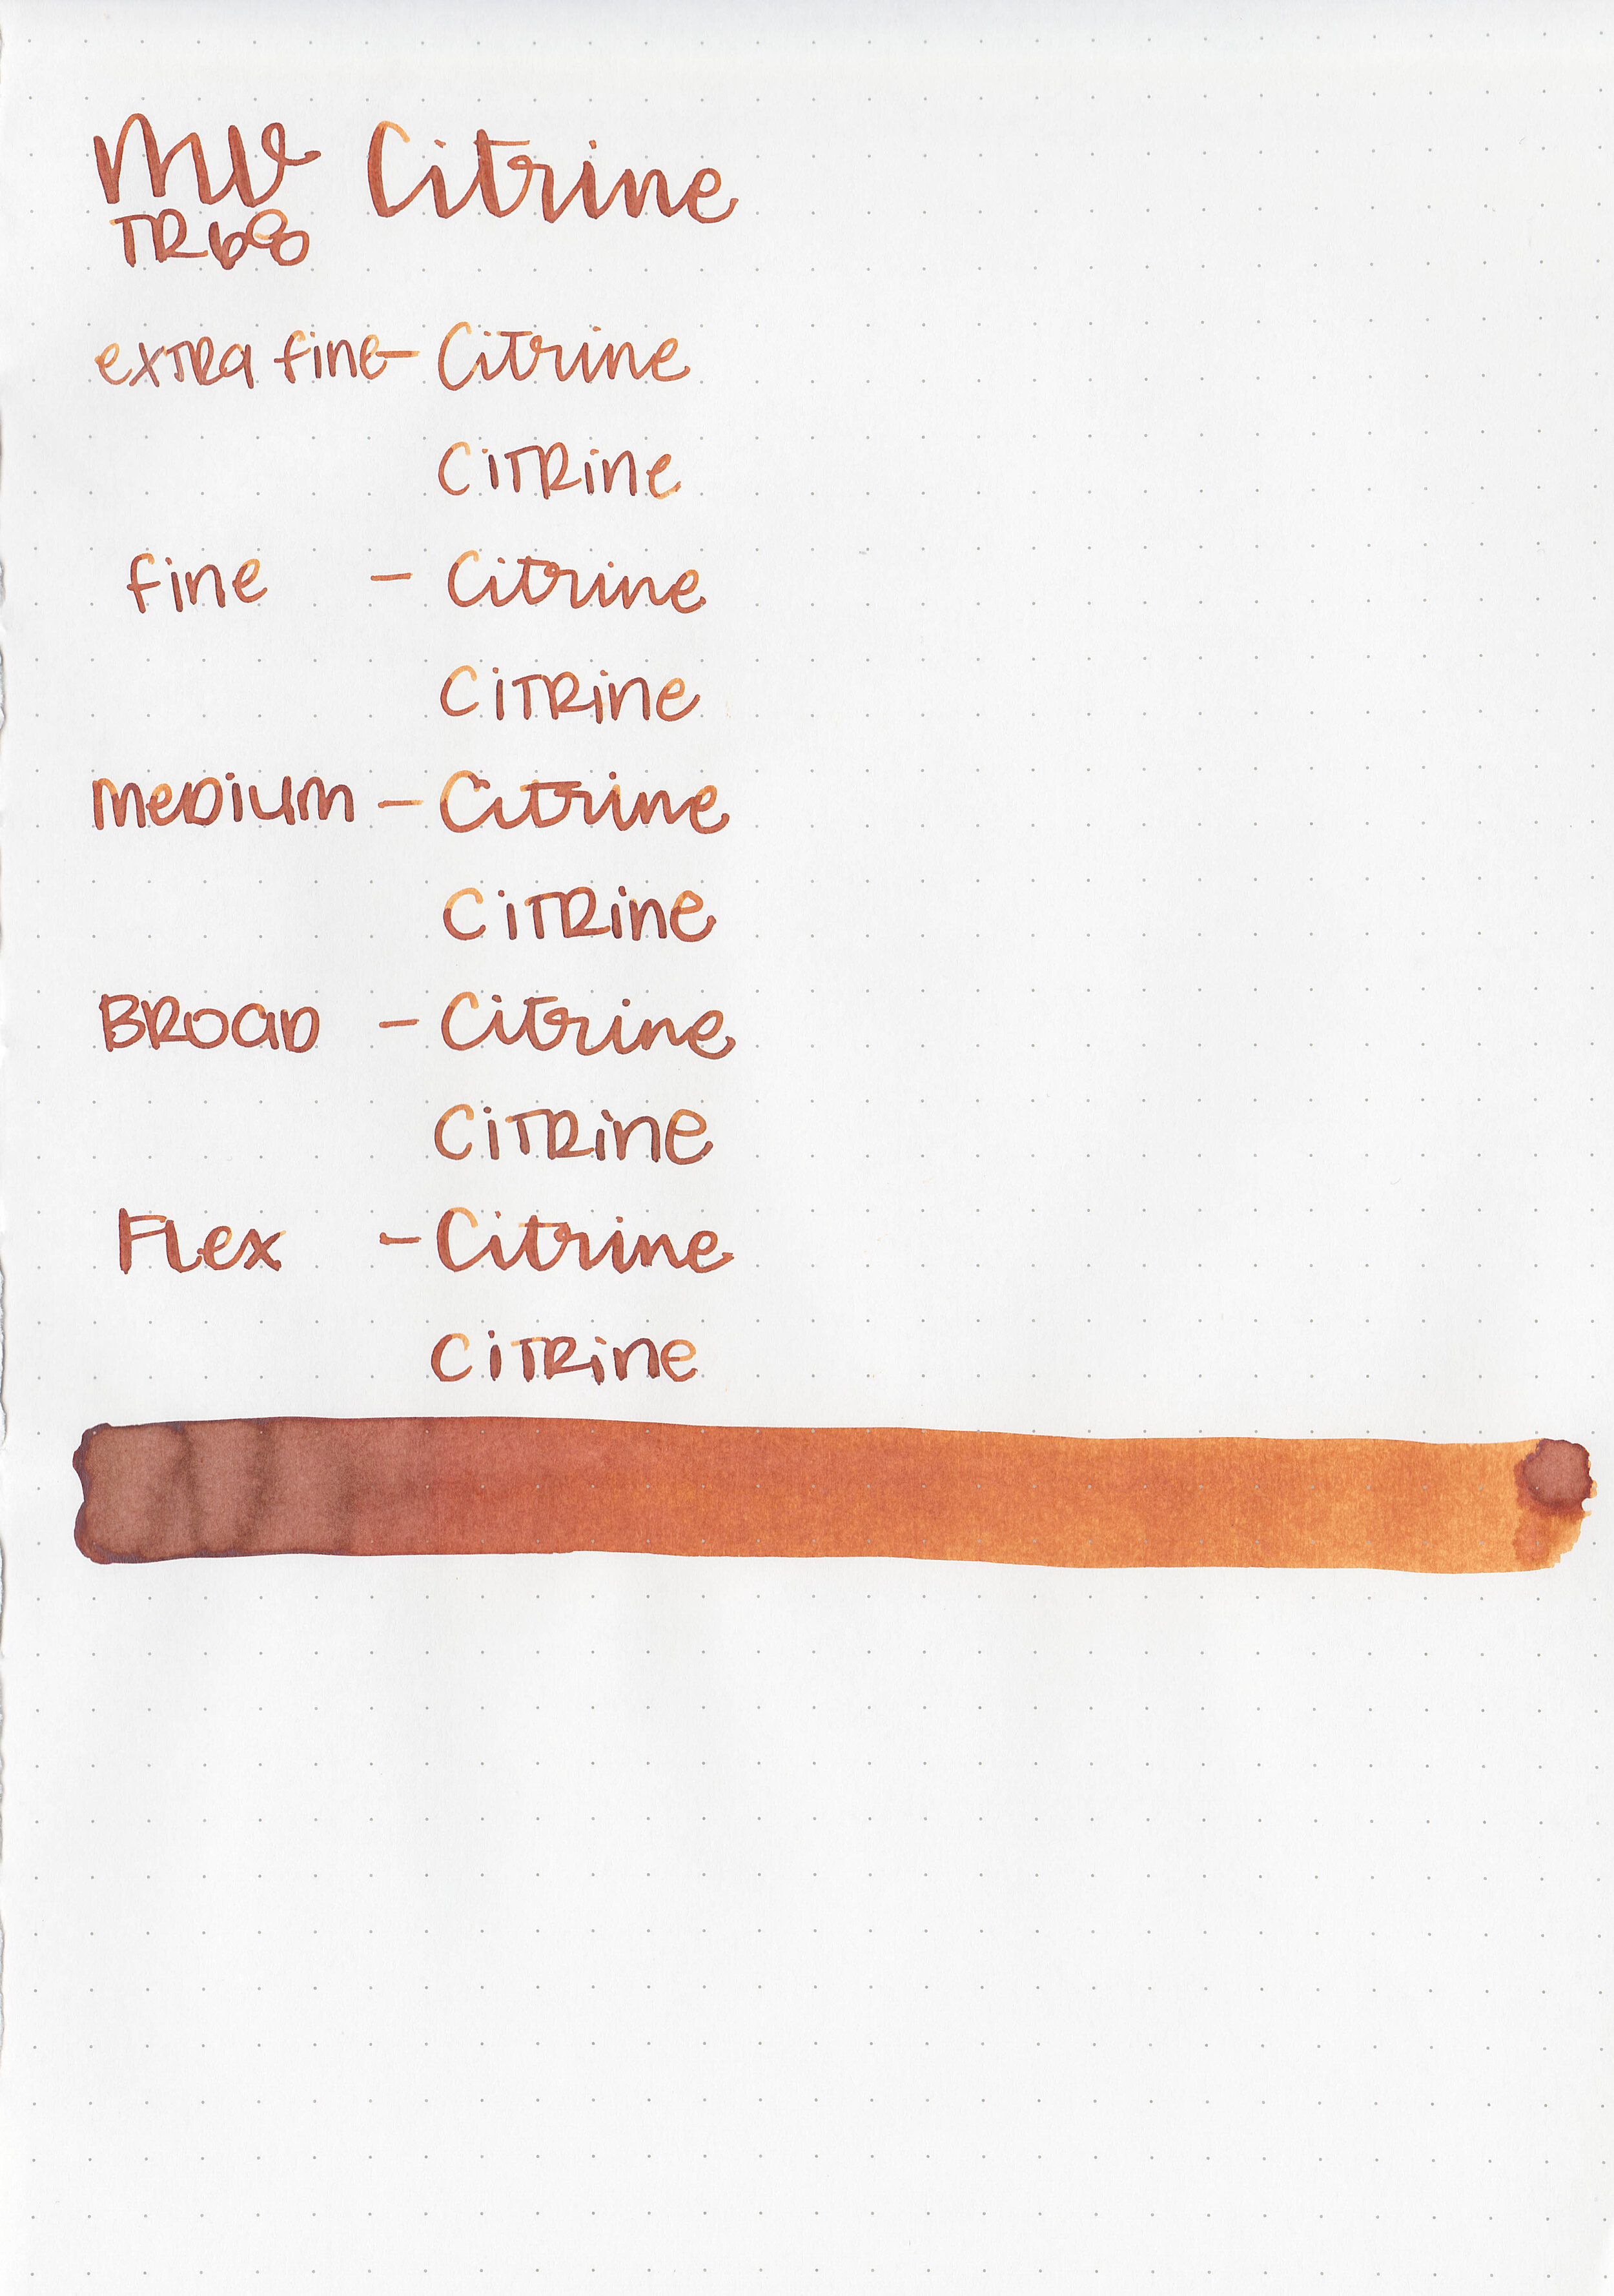 MV Citrine
TR68
extra fine - Citrine
CiTRine
fine - Citrine
CiTRine
meDium - Citrine
CiTRine
BROaD - Citrine
CiTRine
FLex - Citrine
CiTRine